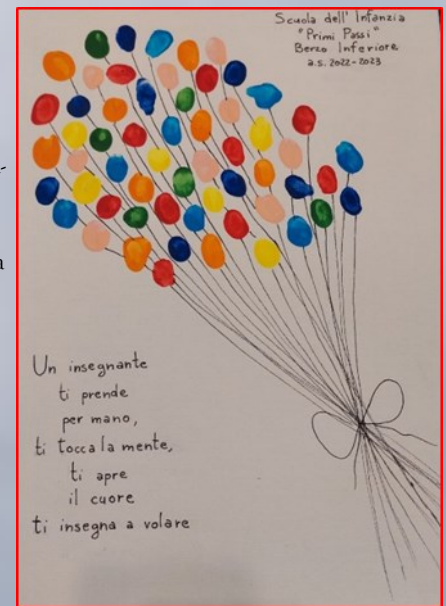 Scuola dell' Infanzia
"Primi Passi"
Berzo Inferiore
a.s. 2022-2023
Un insegnante
ti prende
per mano,
ti tocca la mente,
ti apre
il cuore
ti insegna a volare